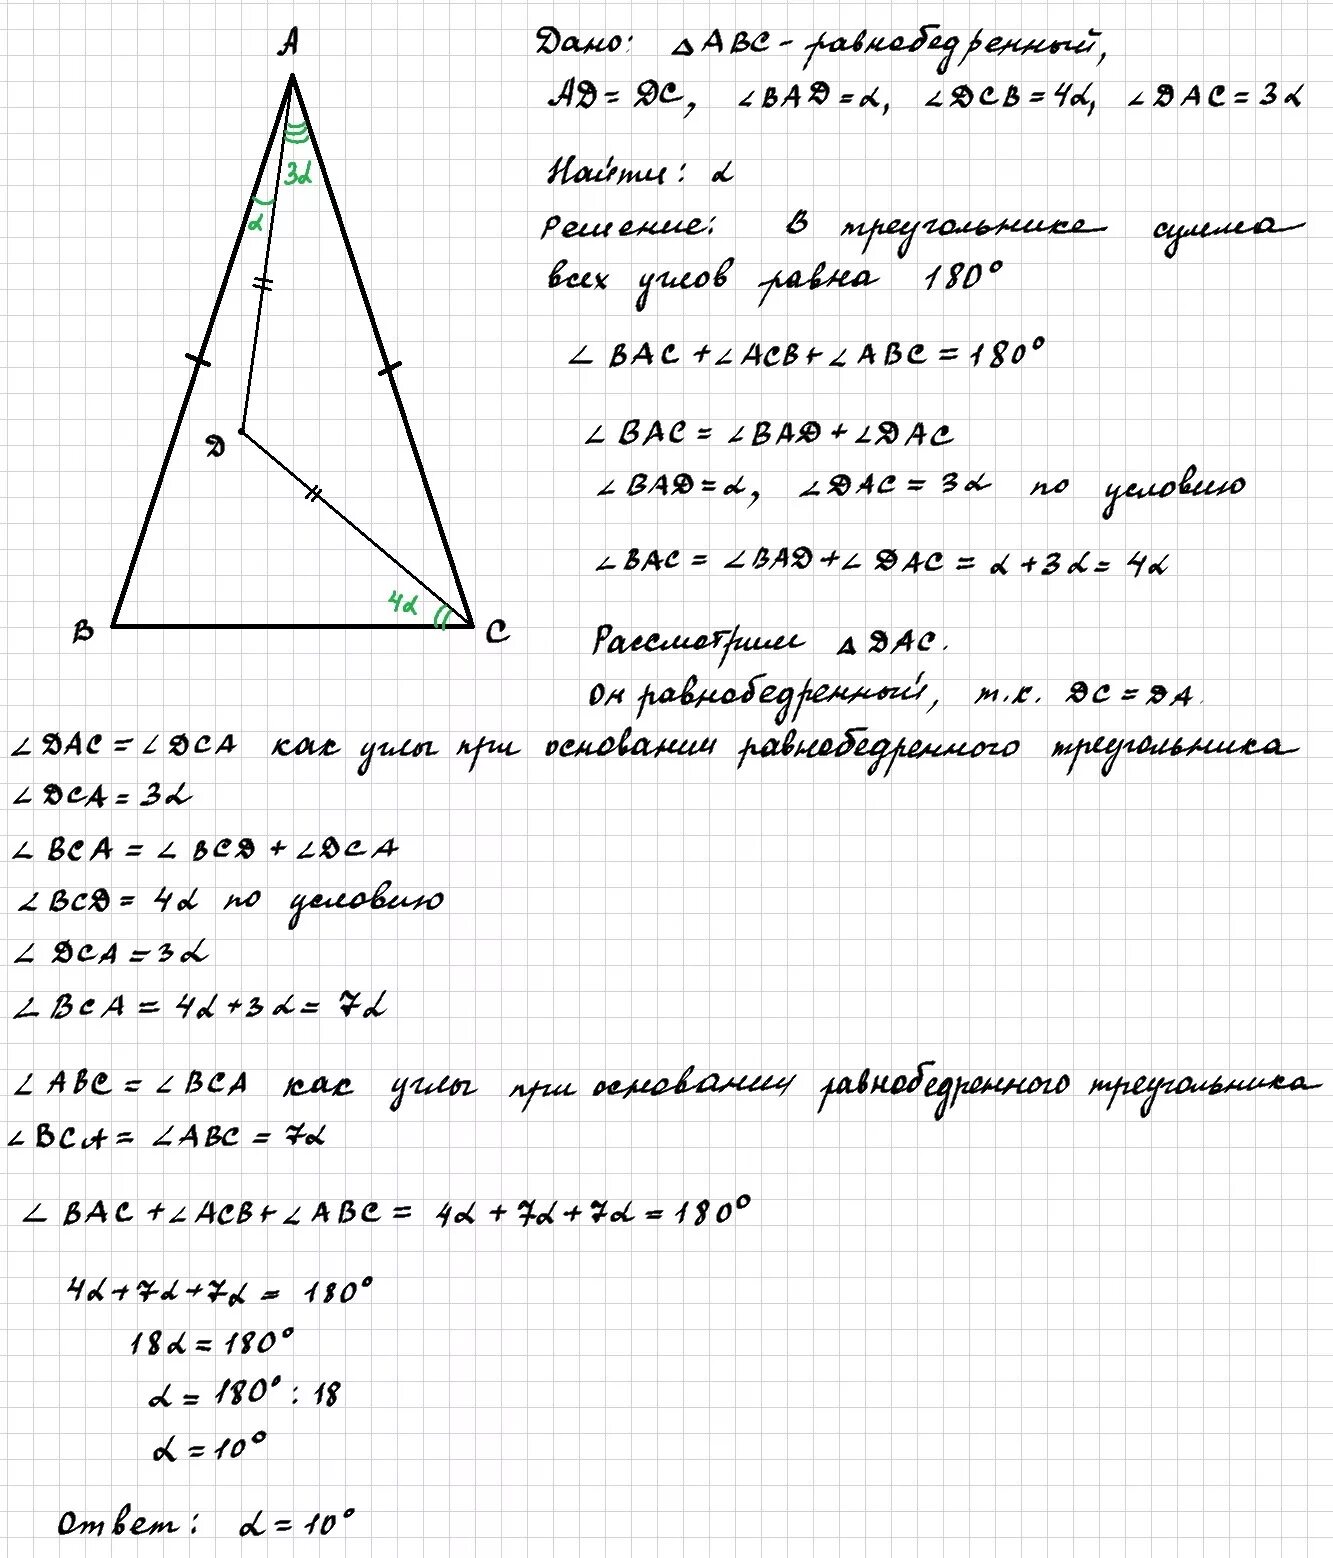 A
3α
α
D
4α
B
C
Дано: △ABC - равнобедренный,
AD = DC, ∠BAD = α, ∠DCB = 4α, ∠DAC = 3α
Найти: α
Решение: В треугольнике сумма
всех углов равна 180°
∠BAC + ∠ACB + ∠ABC = 180°
∠BAC = ∠BAD + ∠DAC
∠BAD = α, ∠DAC = 3α по условию
∠BAC = ∠BAD + ∠DAC = α + 3α = 4α
Рассмотрим △DAC.
Он равнобедренный, т.к. DC = DA.
∠DAC = ∠DCA как углы при основании равнобедренного треугольника
∠DCA = 3α
∠BCA = ∠BCD + ∠DCA
∠BCD = 4α по условию
∠DCA = 3α
∠BCA = 4α + 3α = 7α
∠ABC = ∠BCA как углы при основании равнобедренного треугольника
∠BCA = ∠ABC = 7α
∠BAC + ∠ACB + ∠ABC = 4α + 7α + 7α = 180°
4α + 7α + 7α = 180°
18α = 180°
α = 180° : 18
α = 10°
Ответ: α = 10°